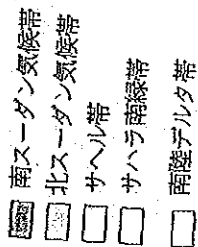 南スーダン気候帯
北スーダン気候帯
サヘル帯
サハラ南縁帯
南陸デルタ帯